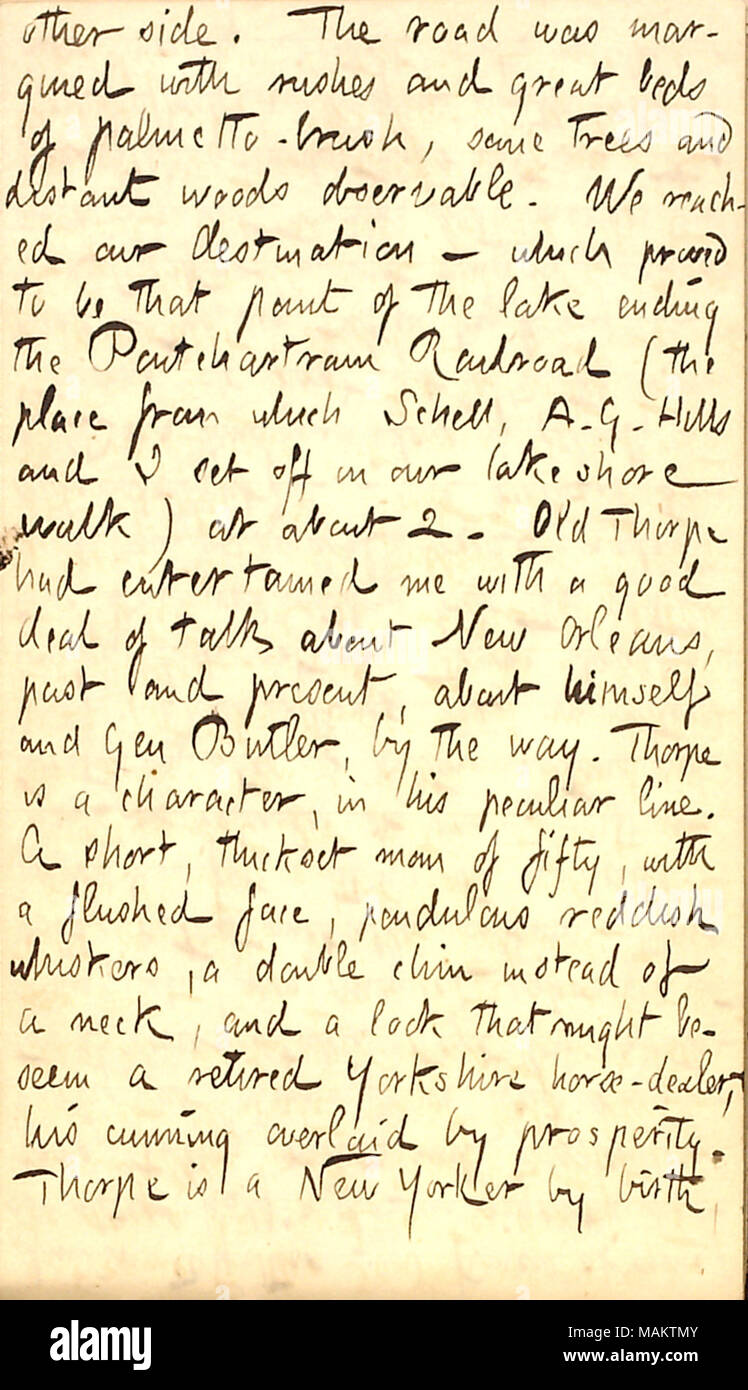 other side. The road was mar-
gined with rushes and great beds
of palmetto-brush, some trees and
distant woods observable. We reach-
ed our destination — which proved
to be that point of the lake ending
the Pontchartrain Railroad (the
place from which Schell, A. G. Hills
and I set off on our lake shore
walk) at about 2. Old Thorpe
had entertained me with a good
deal of talk about New Orleans,
past and present, about himself
and Gen Butler, by the way. Thorpe
is a character, in his peculiar line.
A short, thickset man of fifty, with
a flushed face, pendulous reddish
whiskers, a double chin instead of
a neck, and a look that might be-
seem a retired Yorkshire horse-dealer,
his cunning overlaid by prosperity.
Thorpe is a New Yorker by birth,
alamy
Image ID: MAKTMY
www.alamy.com